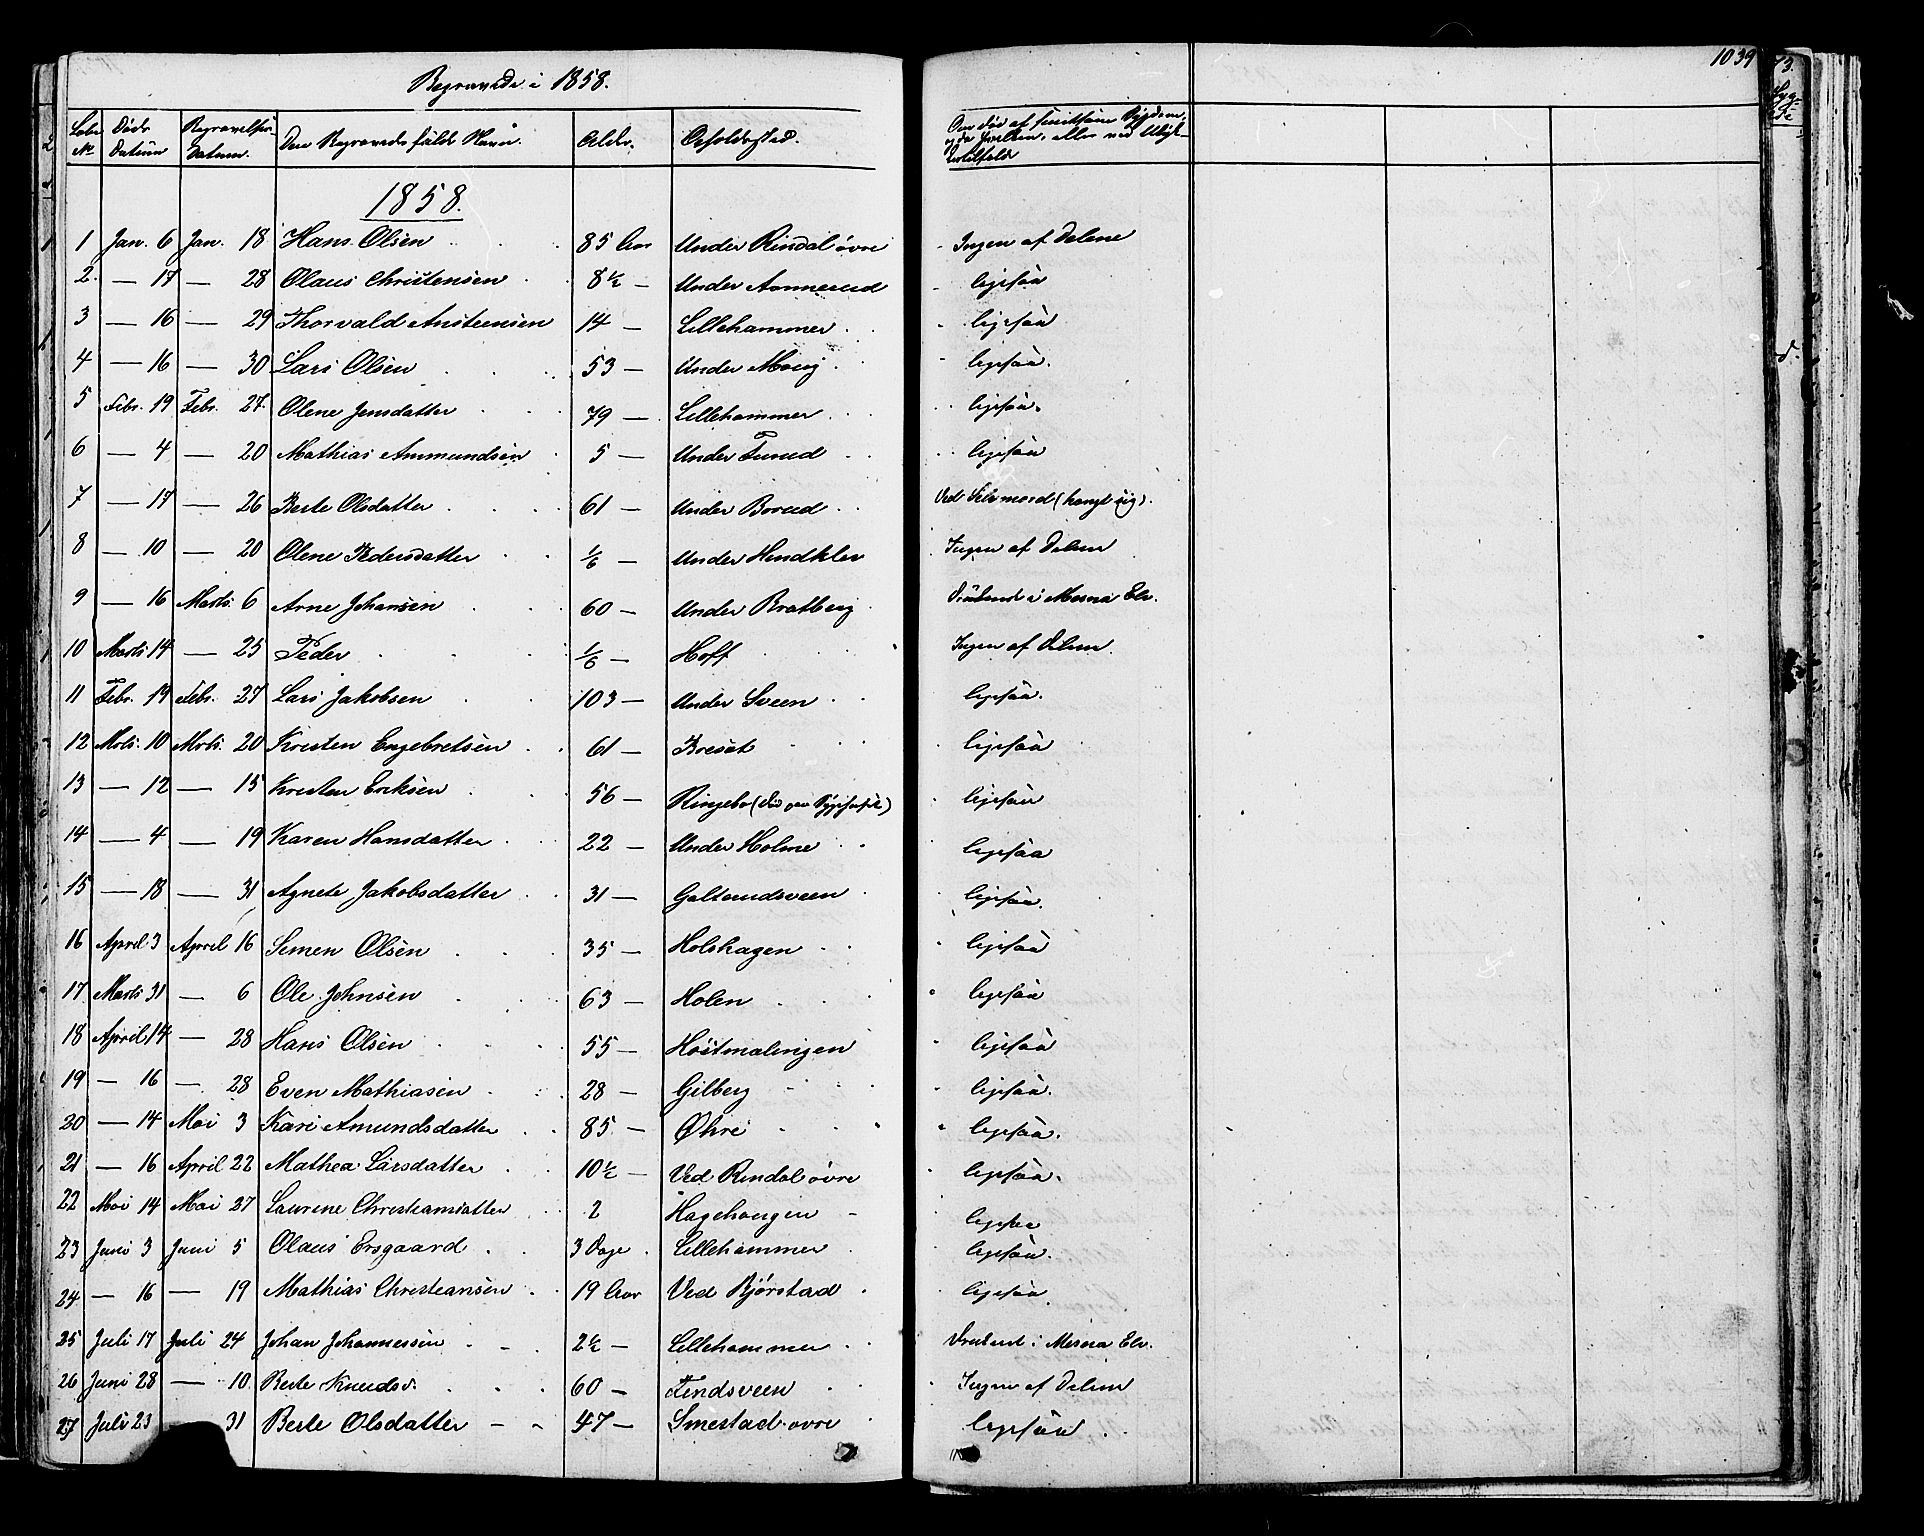 Begravede i 1858.
1039
Løbe No Døds Datum Begravelses Datum. Den Begravedes fulde Navn. Alder. Opholdssted. Om død af smitsom Sygdom, eller ved Ulykkestilfælde
1858.
1 Jan. 6 Jan. 18 Hans Olsen 85 Aar Under Rindal øvre Ingen af Delene
2. — 17 — 28 Olaus Christensen 8½ — Under Aannerud ligesaa
3 — 16 — 29 Thorvald Ansteensen 14 — Lillehammer ligesaa
4 — 16 — 30 Lars Olsen 53 — Under Moug ligesaa.
5 Febr. 19 Febr. 27. Olene Jensdatter 79 — Lillehammer ligesaa.
6 — 4 — 20 Mathias Ammundsen 5 — Under Furud ligesaa
7 — 17 — 26 Berte Olsdatter 61 — Under Borud Ved Selvmord (hængt sig).
8 — 10 — 20 Olene Pedersdatter ⅙ — Under Hindklev Ingen af Delene
9 — 16 Marts. 6 Arne Johansen 60 — Under Bratberg Druknet i Mesna Elv.
10 Marts 14 — 25 Peder ⅙ — Hoff Ingen af Delene.
11 Febr. 19 Febr. 27 Lars Jakobsen 103 — Under Sveen ligesaa.
12 Mrts. 10 Mrts. 20 Kristen Engebretsen 61 — Breset ligesaa
13 — 12 — 15 Kristen Eriksen 56 — Ringebo (død paa Sygehuset) ligesaa
14 — 4 — 19 Karen Hansdatter 22 — Under Holme ligesaa
15 — 18 — 31 Agnete Jakobsdatter 31 — Galterudsveen ligesaa.
16 April 3 April 16 Simen Olsen 35 — Holshagen ligesaa
17 Marts 31 — 6 Ole Johnsen 63 — Holen ligesaa
18 April 14 — 28 Hans Olsen 55 — Høistmælingen ligesaa
19 — 16 — 28 Even Mathiasen 28 — Gilberg ligesaa.
20 — 14 Mai 3 Kari Amundsdatter 85 — Øhre ligesaa.
21 — 16 April 22 Mathea Larsdatter 10½ — Ved Rindal øvre ligesaa.
22 Mai 14 Mai 27 Laurine Christiansdatter 2 Hagehougen ligesaa
23 Juni 3 Juni 5 Olaus Ersgaard 3 Dage Lillehammer ligesaa.
24 — 16 — 19 Mathias Christiansen 19 Aar Ved Bjørstad ligesaa
25 Juli 17 Juli 24 Johan Johannessen 2½ — Lillehammer Druknet i Mesna Elv.
26 Juni 28 — 10 Berte Knudsd. 60 — Findsveen Ingen af Delene
27 Juli 23 31 Berte Olsdatter 47 — Smestad øvre ligesaa